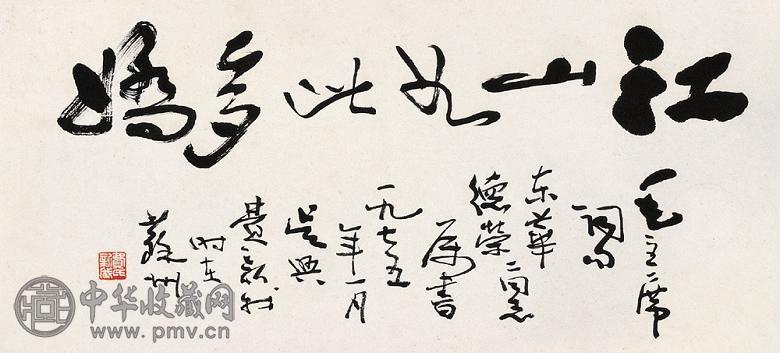 江山如此多嬌
毛主席
词句
东華
德荣二同志
属書
一九七五
年一月
吴興
費新我
时在
蘇州
中华收藏网
www.pmv.cn